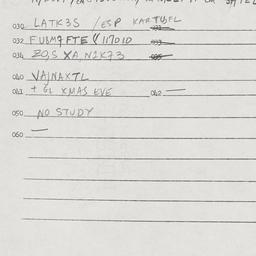 030 LATK3S /ESP KARTUFEL 031
032 FUBM9 FTE 117010 033
034 ZO,S XA,N2K73 035
040 VAJNAXTL
041 + GL XMAS EVE 042 —
050 NO STUDY
060 —